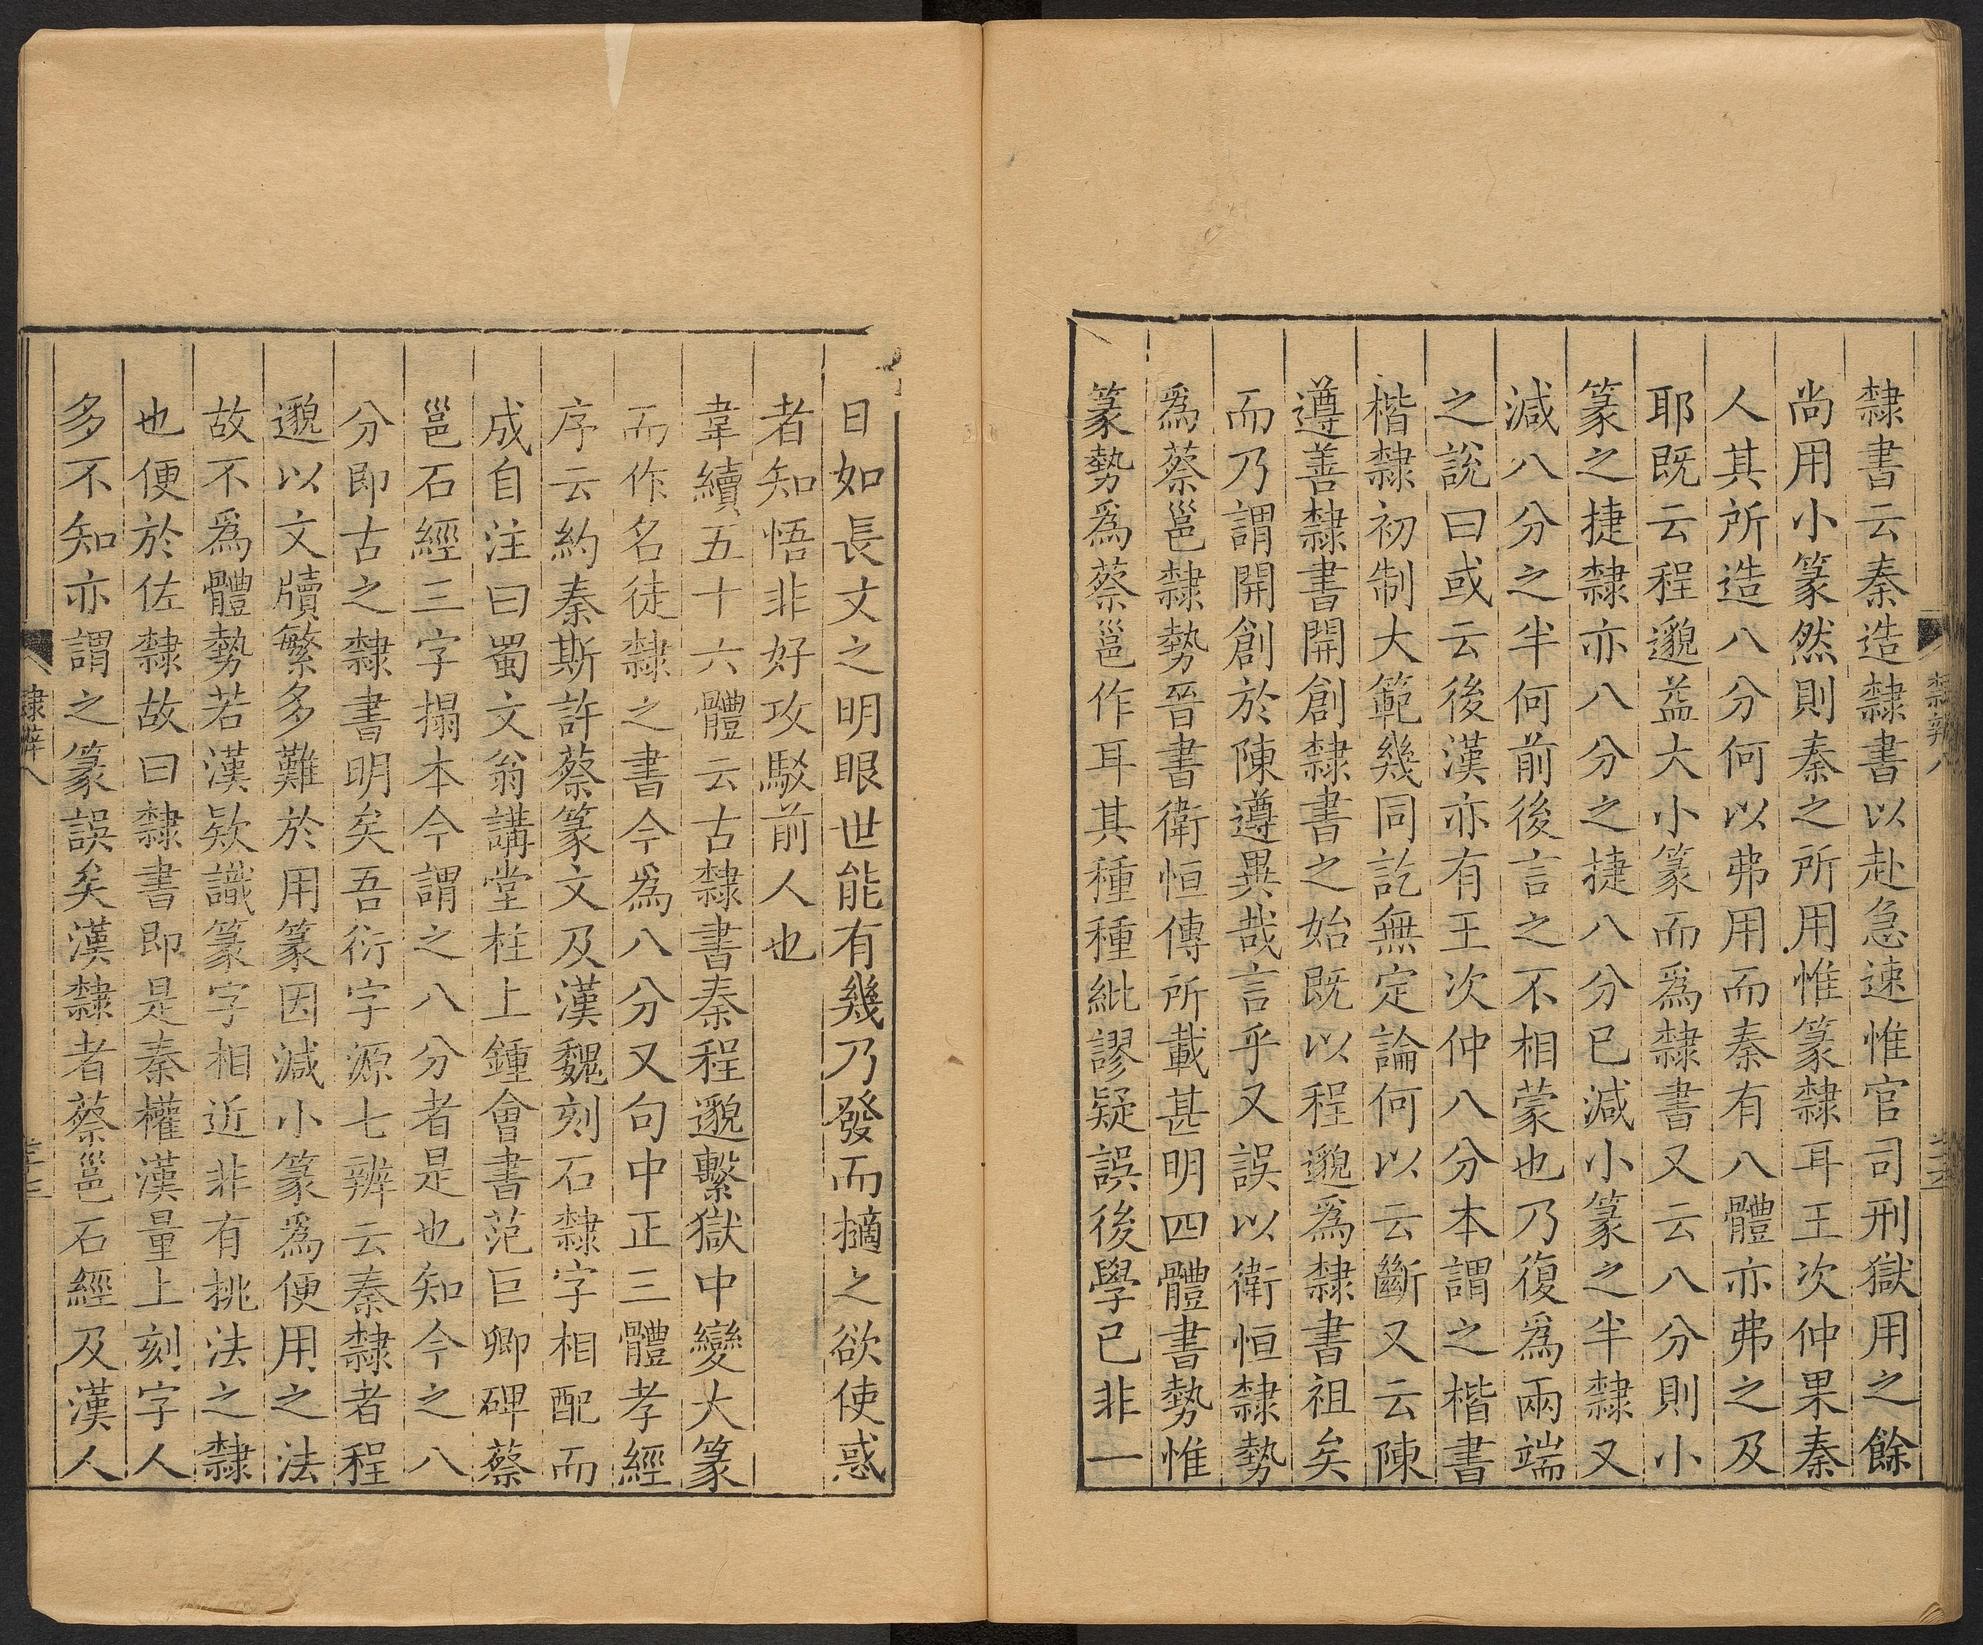 隸書云秦造隸書以赴急速惟官司刑獄用之餘
尚用小篆然則秦之所用惟篆隸耳王次仲果秦
人其所造八分何以弗用而秦有八體亦弗之及
耶既云程邈益大小篆而爲隸書又云八分則小
篆之捷隸亦八分之捷八分已減小篆之半隸又
減八分之半何前後言之不相蒙也乃復爲兩端
之說曰或云後漢亦有王次仲八分本謂之楷書
楷隸初制大範幾同訖無定論何以云斷又云陳
遵善隸書開創隸書之始既以程邈爲隸書祖矣
而乃謂開創於陳遵異哉言乎又誤以衛恒隸勢
爲蔡邕隸勢晉書衛恒傳所載甚明四體書勢惟
篆勢爲蔡邕作耳其種種紕謬疑誤後學已非一
隸辨八
日如長文之明眼世能有幾乃發而擿之欲使惑
者知悟非好攻駁前人也
韋續五十六體云古隸書秦程邈繫獄中變大篆
而作名徒隸之書今爲八分又句中正三體孝經
序云約秦斯許蔡篆文及漢魏刻石隸字相配而
成自注曰蜀文翁講堂柱上鍾會書范巨卿碑蔡
邕石經三字搨本今謂之八分者是也知今之八
分即古之隸書明矣吾衍字源七辨云秦隸者程
邈以文牘繁多難於用篆因減小篆爲便用之法
故不爲體勢若漢欵識篆字相近非有挑法之隸
也便於佐隸故曰隸書即是秦權漢量上刻字人
多不知亦謂之篆誤矣漢隸者蔡邕石經及漢人
隸辨八